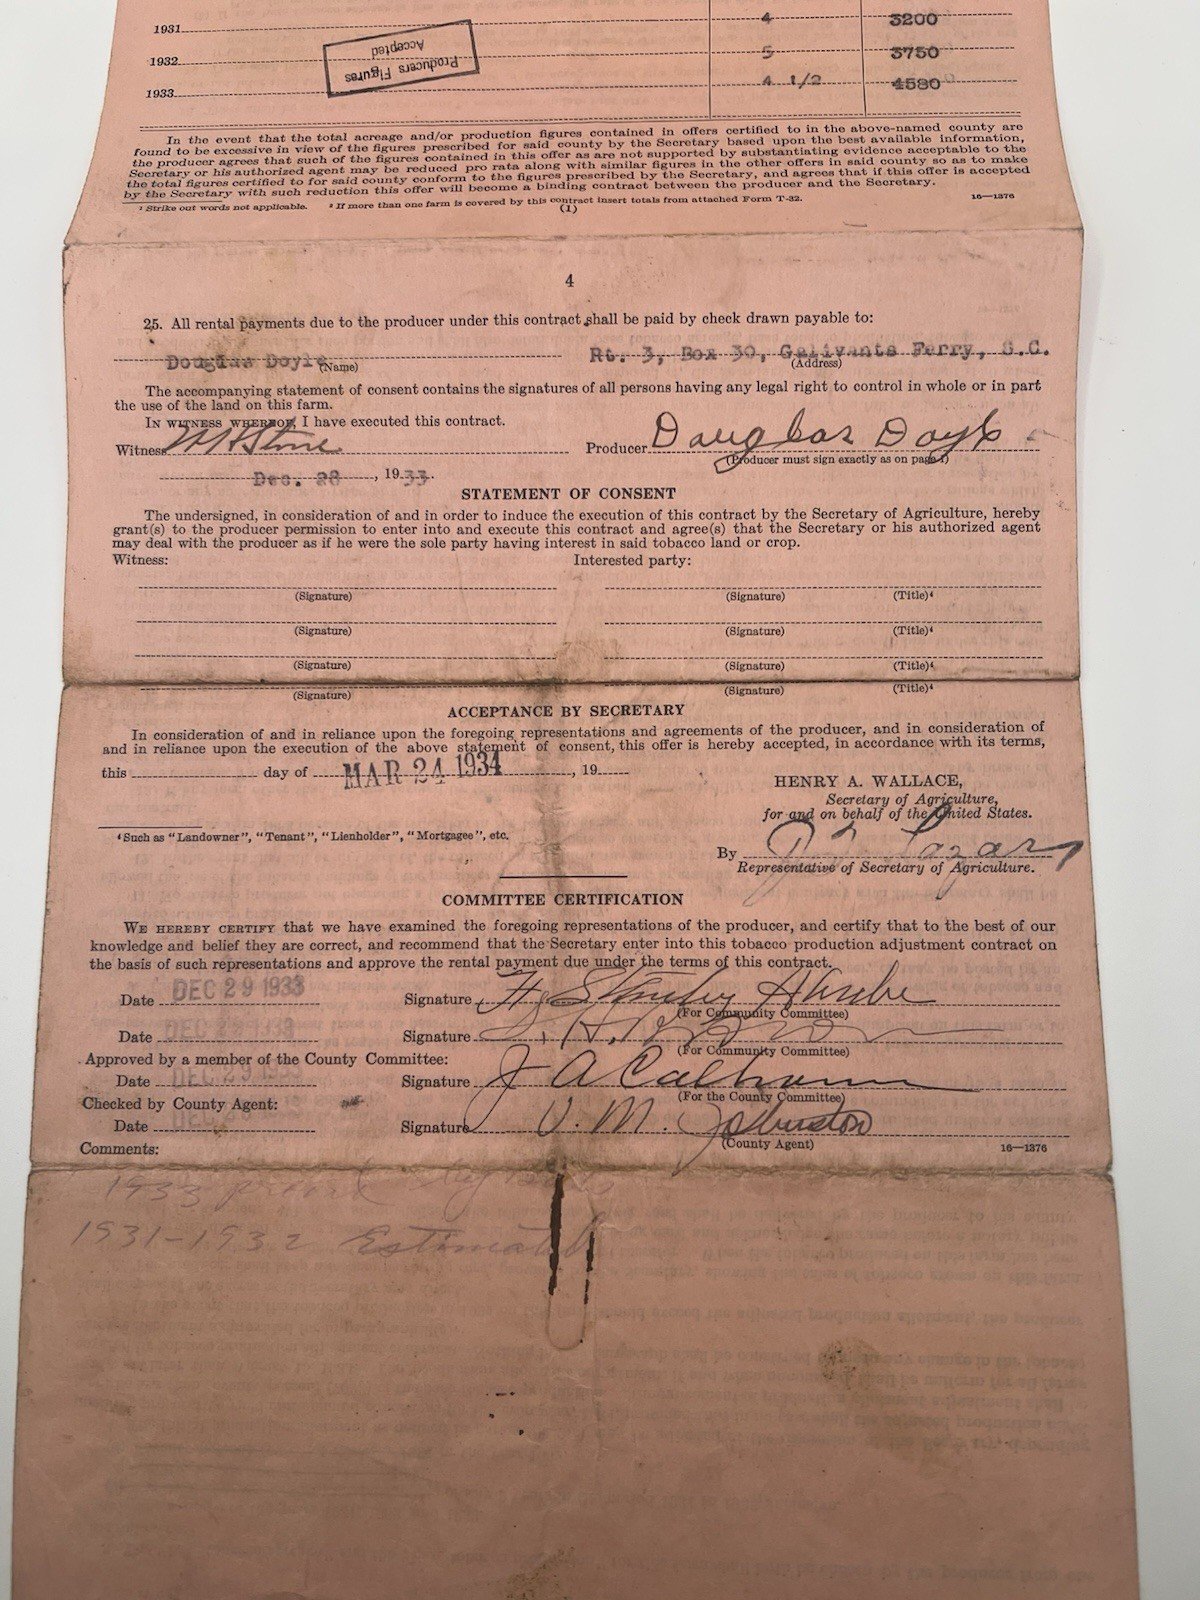 1931 4 3200
Producers Figures
Accepted
1932 5 3750
1933 4 1/2 4580
In the event that the total acreage and/or production figures contained in offers certified to in the above-named county are
found to be excessive in view of the figures prescribed for said county by the Secretary based upon the best available information,
the producer agrees that such of the figures contained in this offer as are not supported by substantiating evidence acceptable to the
Secretary or his authorized agent may be reduced pro rata along with similar figures in the other offers in said county so as to make
the total figures certified to for said county conform to the figures prescribed by the Secretary, and agrees that if this offer is accepted
by the Secretary with such reduction this offer will become a binding contract between the producer and the Secretary.
¹ Strike out words not applicable. ² If more than one farm is covered by this contract insert totals from attached Form T-32.
(1) 16—1376
4
25. All rental payments due to the producer under this contract shall be paid by check drawn payable to:
Douglas Doyle Rt. 3, Box 30, Galivants Ferry, S.C.
(Name) (Address)
The accompanying statement of consent contains the signatures of all persons having any legal right to control in whole or in part
the use of the land on this farm.
IN WITNESS WHEREOF, I have executed this contract.
Witness Producer Douglas Doyle
(Producer must sign exactly as on page 1)
Dec. 28, 1933.
STATEMENT OF CONSENT
The undersigned, in consideration of and in order to induce the execution of this contract by the Secretary of Agriculture, hereby
grant(s) to the producer permission to enter into and execute this contract and agree(s) that the Secretary or his authorized agent
may deal with the producer as if he were the sole party having interest in said tobacco land or crop.
Witness: Interested party:
(Signature) (Signature) (Title)⁴
(Signature) (Signature) (Title)⁴
(Signature) (Signature) (Title)⁴
(Signature) (Signature) (Title)⁴
ACCEPTANCE BY SECRETARY
In consideration of and in reliance upon the foregoing representations and agreements of the producer, and in consideration of
and in reliance upon the execution of the above statement of consent, this offer is hereby accepted, in accordance with its terms,
this day of MAR 24 1934, 19
HENRY A. WALLACE,
Secretary of Agriculture,
for and on behalf of the United States.
⁴ Such as "Landowner", "Tenant", "Lienholder", "Mortgagee", etc.
By
Representative of Secretary of Agriculture.
COMMITTEE CERTIFICATION
WE HEREBY CERTIFY that we have examined the foregoing representations of the producer, and certify that to the best of our
knowledge and belief they are correct, and recommend that the Secretary enter into this tobacco production adjustment contract on
the basis of such representations and approve the rental payment due under the terms of this contract.
Date DEC 29 1933 Signature
(For Community Committee)
Date DEC 29 1933 Signature
(For Community Committee)
Approved by a member of the County Committee:
Date DEC 29 1933 Signature J A Calhoun
(For the County Committee)
Checked by County Agent:
Date DEC 29 Signature V. M. Johnston
(County Agent)
Comments: 16—1376
1933
1931-1932 Estimated